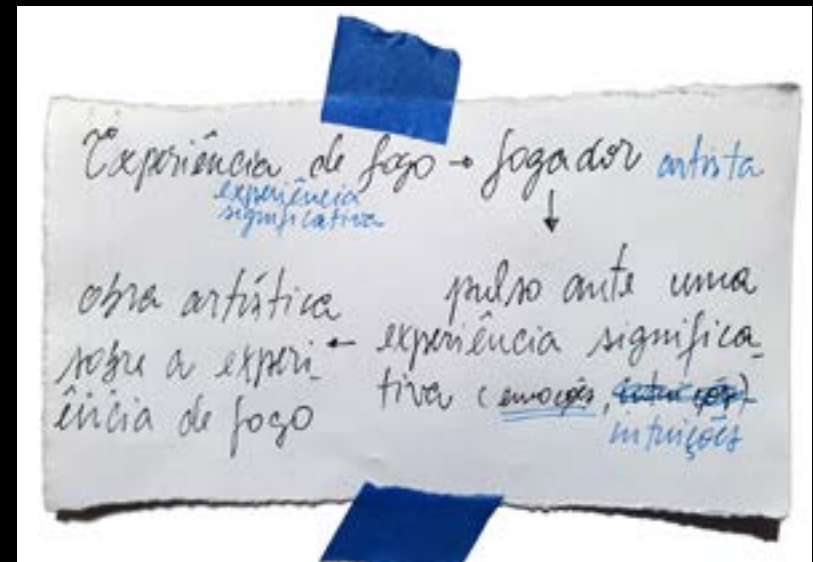 Experiência de jogo → jogador artista
experiência
significativa
↓
pulso ante uma
experiência significa-
tiva (emoções, intuições)
intuições
←
obra artística
sobre a experi-
ência de jogo